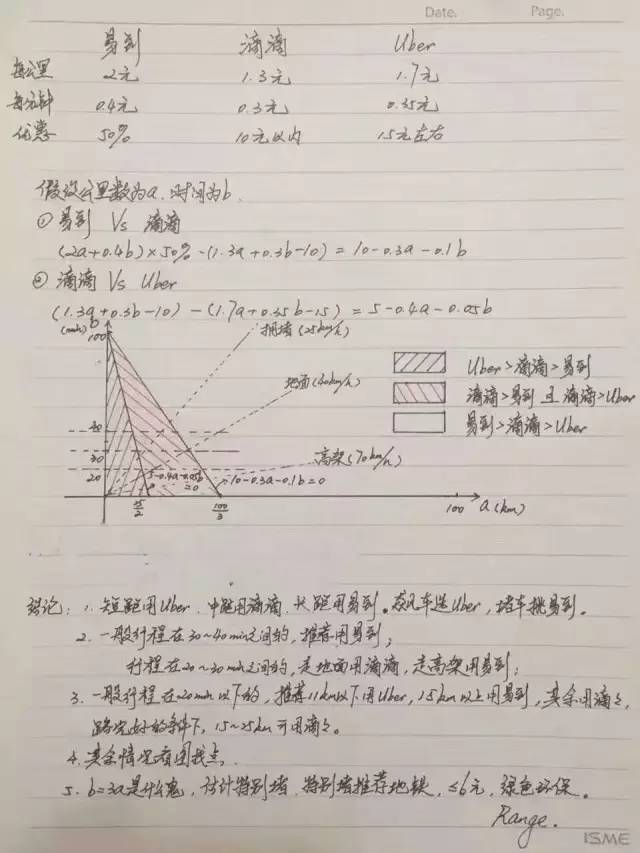 Date. Page.
易到 滴滴 Uber
每公里 2元 1.3元 1.7元
每分钟 0.4元 0.3元 0.35元
优惠 50% 10元以内 15元左右
假设公里数为a,时间为b.
① 易到 Vs 滴滴
(2a+0.4b)×50%-(1.3a+0.3b-10)=10-0.3a-0.1b
② 滴滴 Vs Uber
(1.3a+0.3b-10)-(1.7a+0.35b-15)=5-0.4a-0.05b
b
(min)
100
拥堵(25km/h)
Uber>滴滴>易到
地面(40km/h)
滴滴>易到 且 滴滴>Uber
易到>滴滴>Uber
30
高架(70km/h)
20
5-0.4a-0.05b=0
10-0.3a-0.1b=0
25/2
100/3
100
a(km)
结论:1. 短距用Uber、中距用滴滴、长距用易到。兜风车选Uber,堵车挑易到。
2. 一般行程在30~40min之间的,推荐用易到;
行程在20~30min之间的,走地面用滴滴,走高架用易到;
3. 一般行程在20min以下的,推荐11km以下用Uber,15km以上用易到,其余用滴滴,
路况好的条件下,15~25km可用滴滴。
4. 其余情况看图找点.
5. b=3a是什么鬼,估计特别堵,特别堵推荐地铁,≤6元,绿色环保。
Range.
ISME